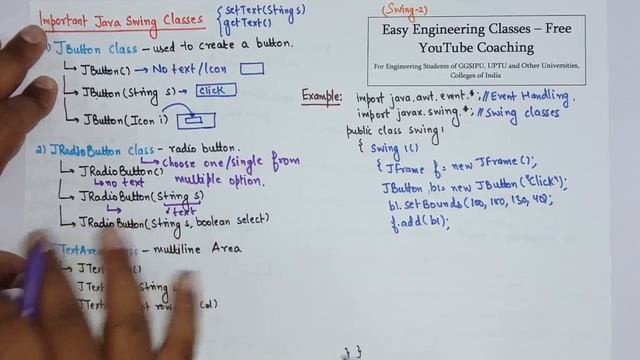 Important Java Swing Classes
{ setText(String s)
getText()
1) JButton class - used to create a button.
↳ JButton() → No text/Icon
↳ JButton(String s) → click
↳ JButton(Icon i)
2) JRadioButton class - radio button.
↳ Choose one/single from
multiple option.
↳ JRadioButton()
↳ no text
↳ JRadioButton(String s)
↳ text
↳ JRadioButton(String s, boolean select)
- multiline Area
(Swing-2)
Easy Engineering Classes – Free
YouTube Coaching
For Engineering Students of GGSIPU, UPTU and Other Universities,
Colleges of India
Example: import java.awt.event.*; // Event Handling.
import javax.swing.*; // Swing classes
public class swing1
{ Swing1()
{ JFrame f = new JFrame();
JButton b1 = new JButton("Click");
b1.setBounds(100, 100, 130, 40);
f.add(b1);
} }